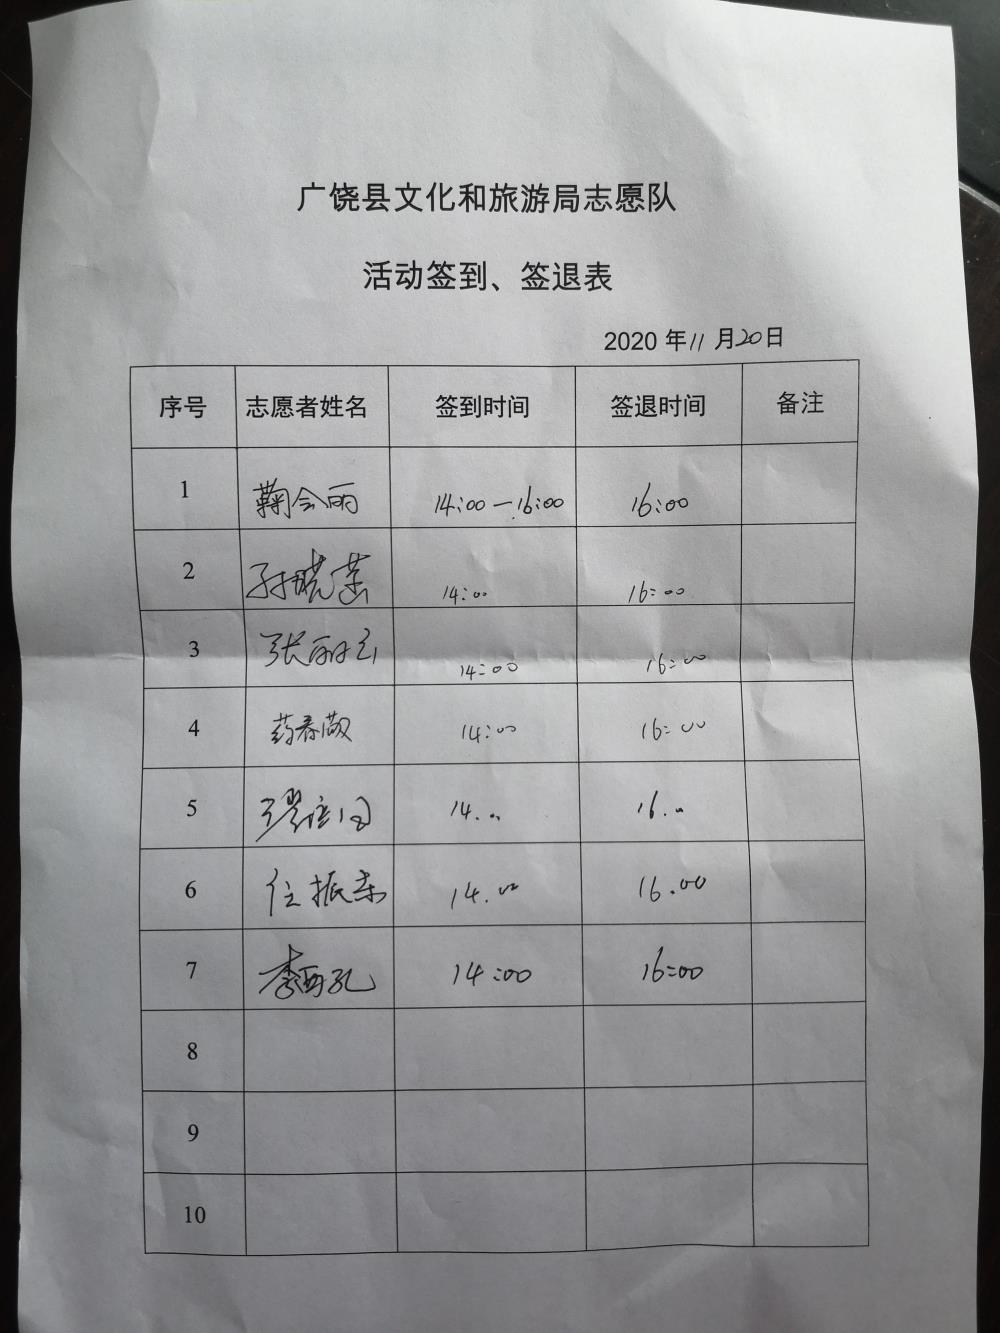 广饶县文化和旅游局志愿队
活动签到、签退表
2020 年 11 月 20 日
序号 志愿者姓名 签到时间 签退时间 备注
1 鞠会丽 14:00—16:00 16:00
2 孙晓 14:00 16:00
3 张丽云 14:00 16:00
4 14:00 16:00
5 14.00 16.00
6 任振东 14.00 16.00
7 李 14:00 16:00
8
9
10